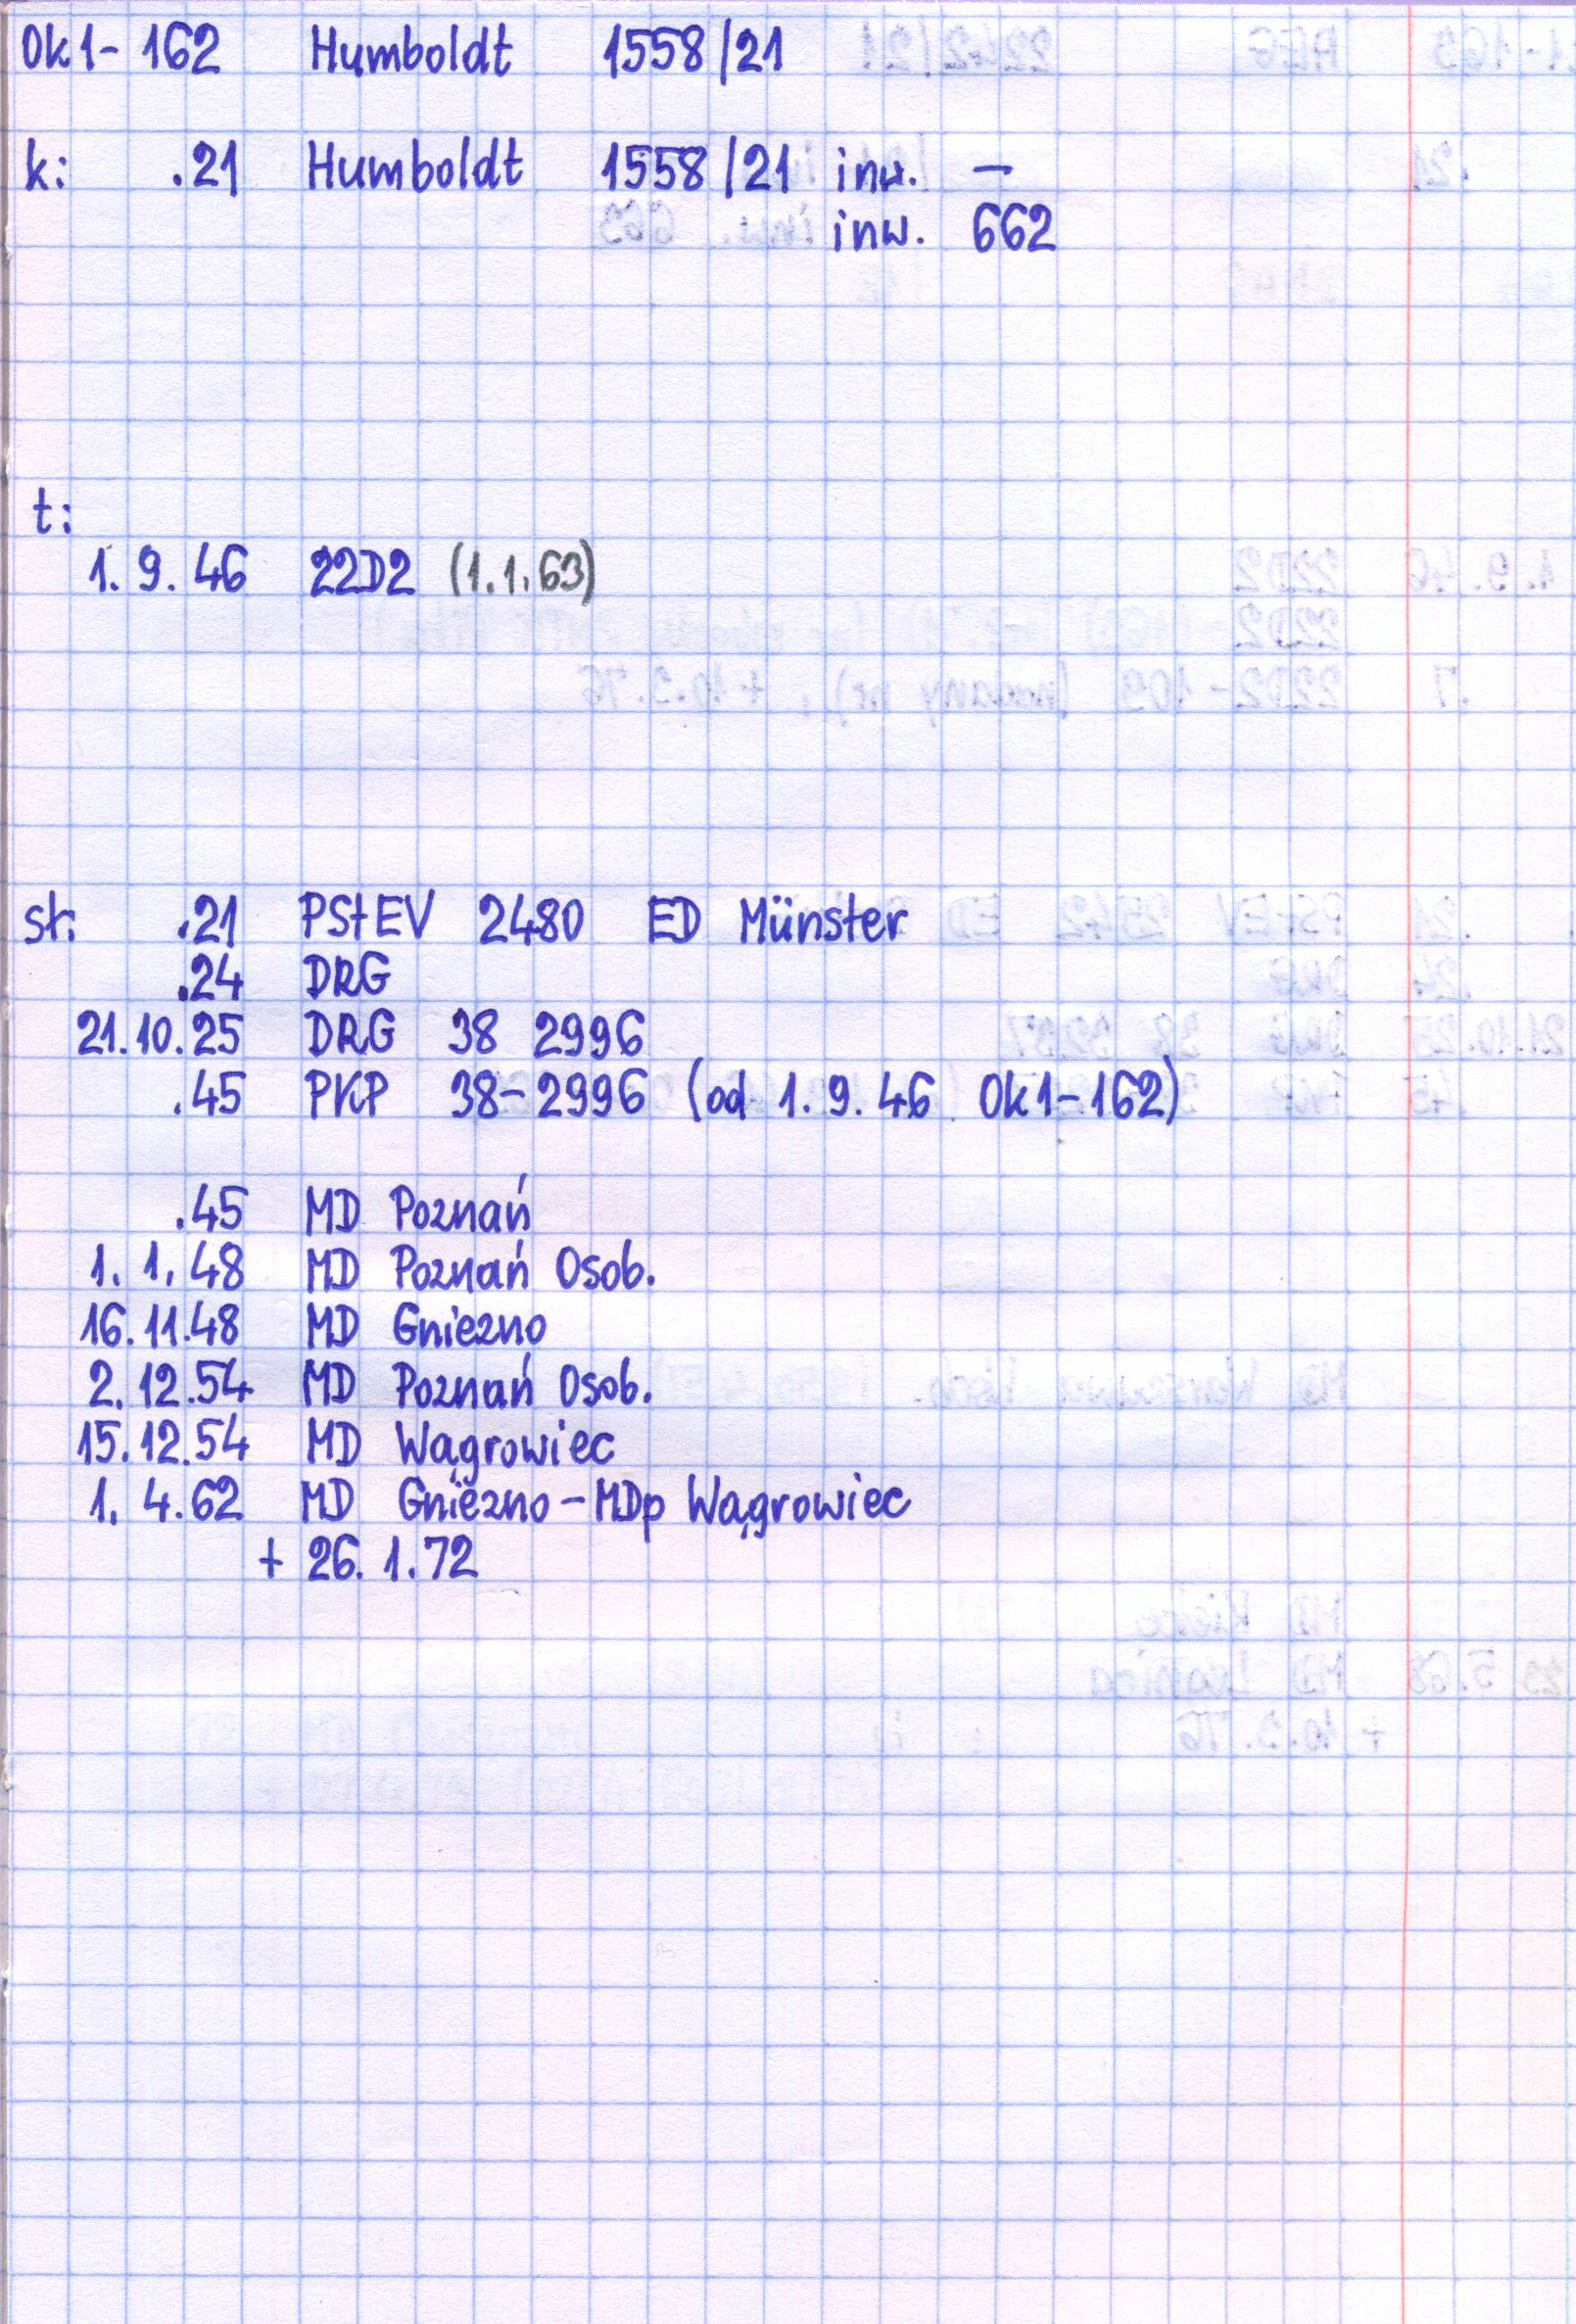 Ok1-162 Humboldt 1558/21
k: .21 Humboldt 1558/21 inw. —
inw. 662
t:
1.9.46 22D2 (1.1.63)
st: .21 PStEV 2480 ED Münster
.24 DRG
21.10.25 DRG 38 2996
.45 PKP 38-2996 (od 1.9.46 Ok1-162)
.45 MD Poznań
1.1.48 MD Poznań Osob.
16.11.48 MD Gniezno
2.12.54 MD Poznań Osob.
15.12.54 MD Wągrowiec
1.4.62 MD Gniezno-MDp Wągrowiec
+ 26.1.72